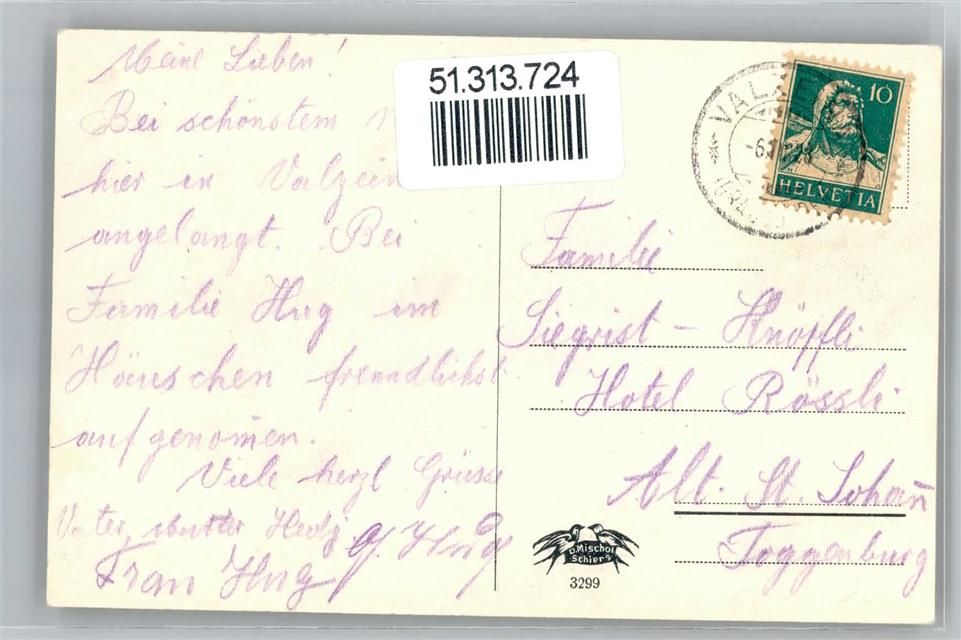 Meine Lieben!
Bei schönstem
hier in Valzein
angelangt. Bei
Familie Hug im
Häuschen freundlichst
aufgenom̄en.
Viele herzl Grüsse
Vater, Mutter Hedy
Frau Hug
51.313.724
10
HELVETIA
Familie
Siegrist - Knöpfli
Hotel Rössli
Alt. St. Johan̄
Toggenburg
D. Mischol
Schiers
3299